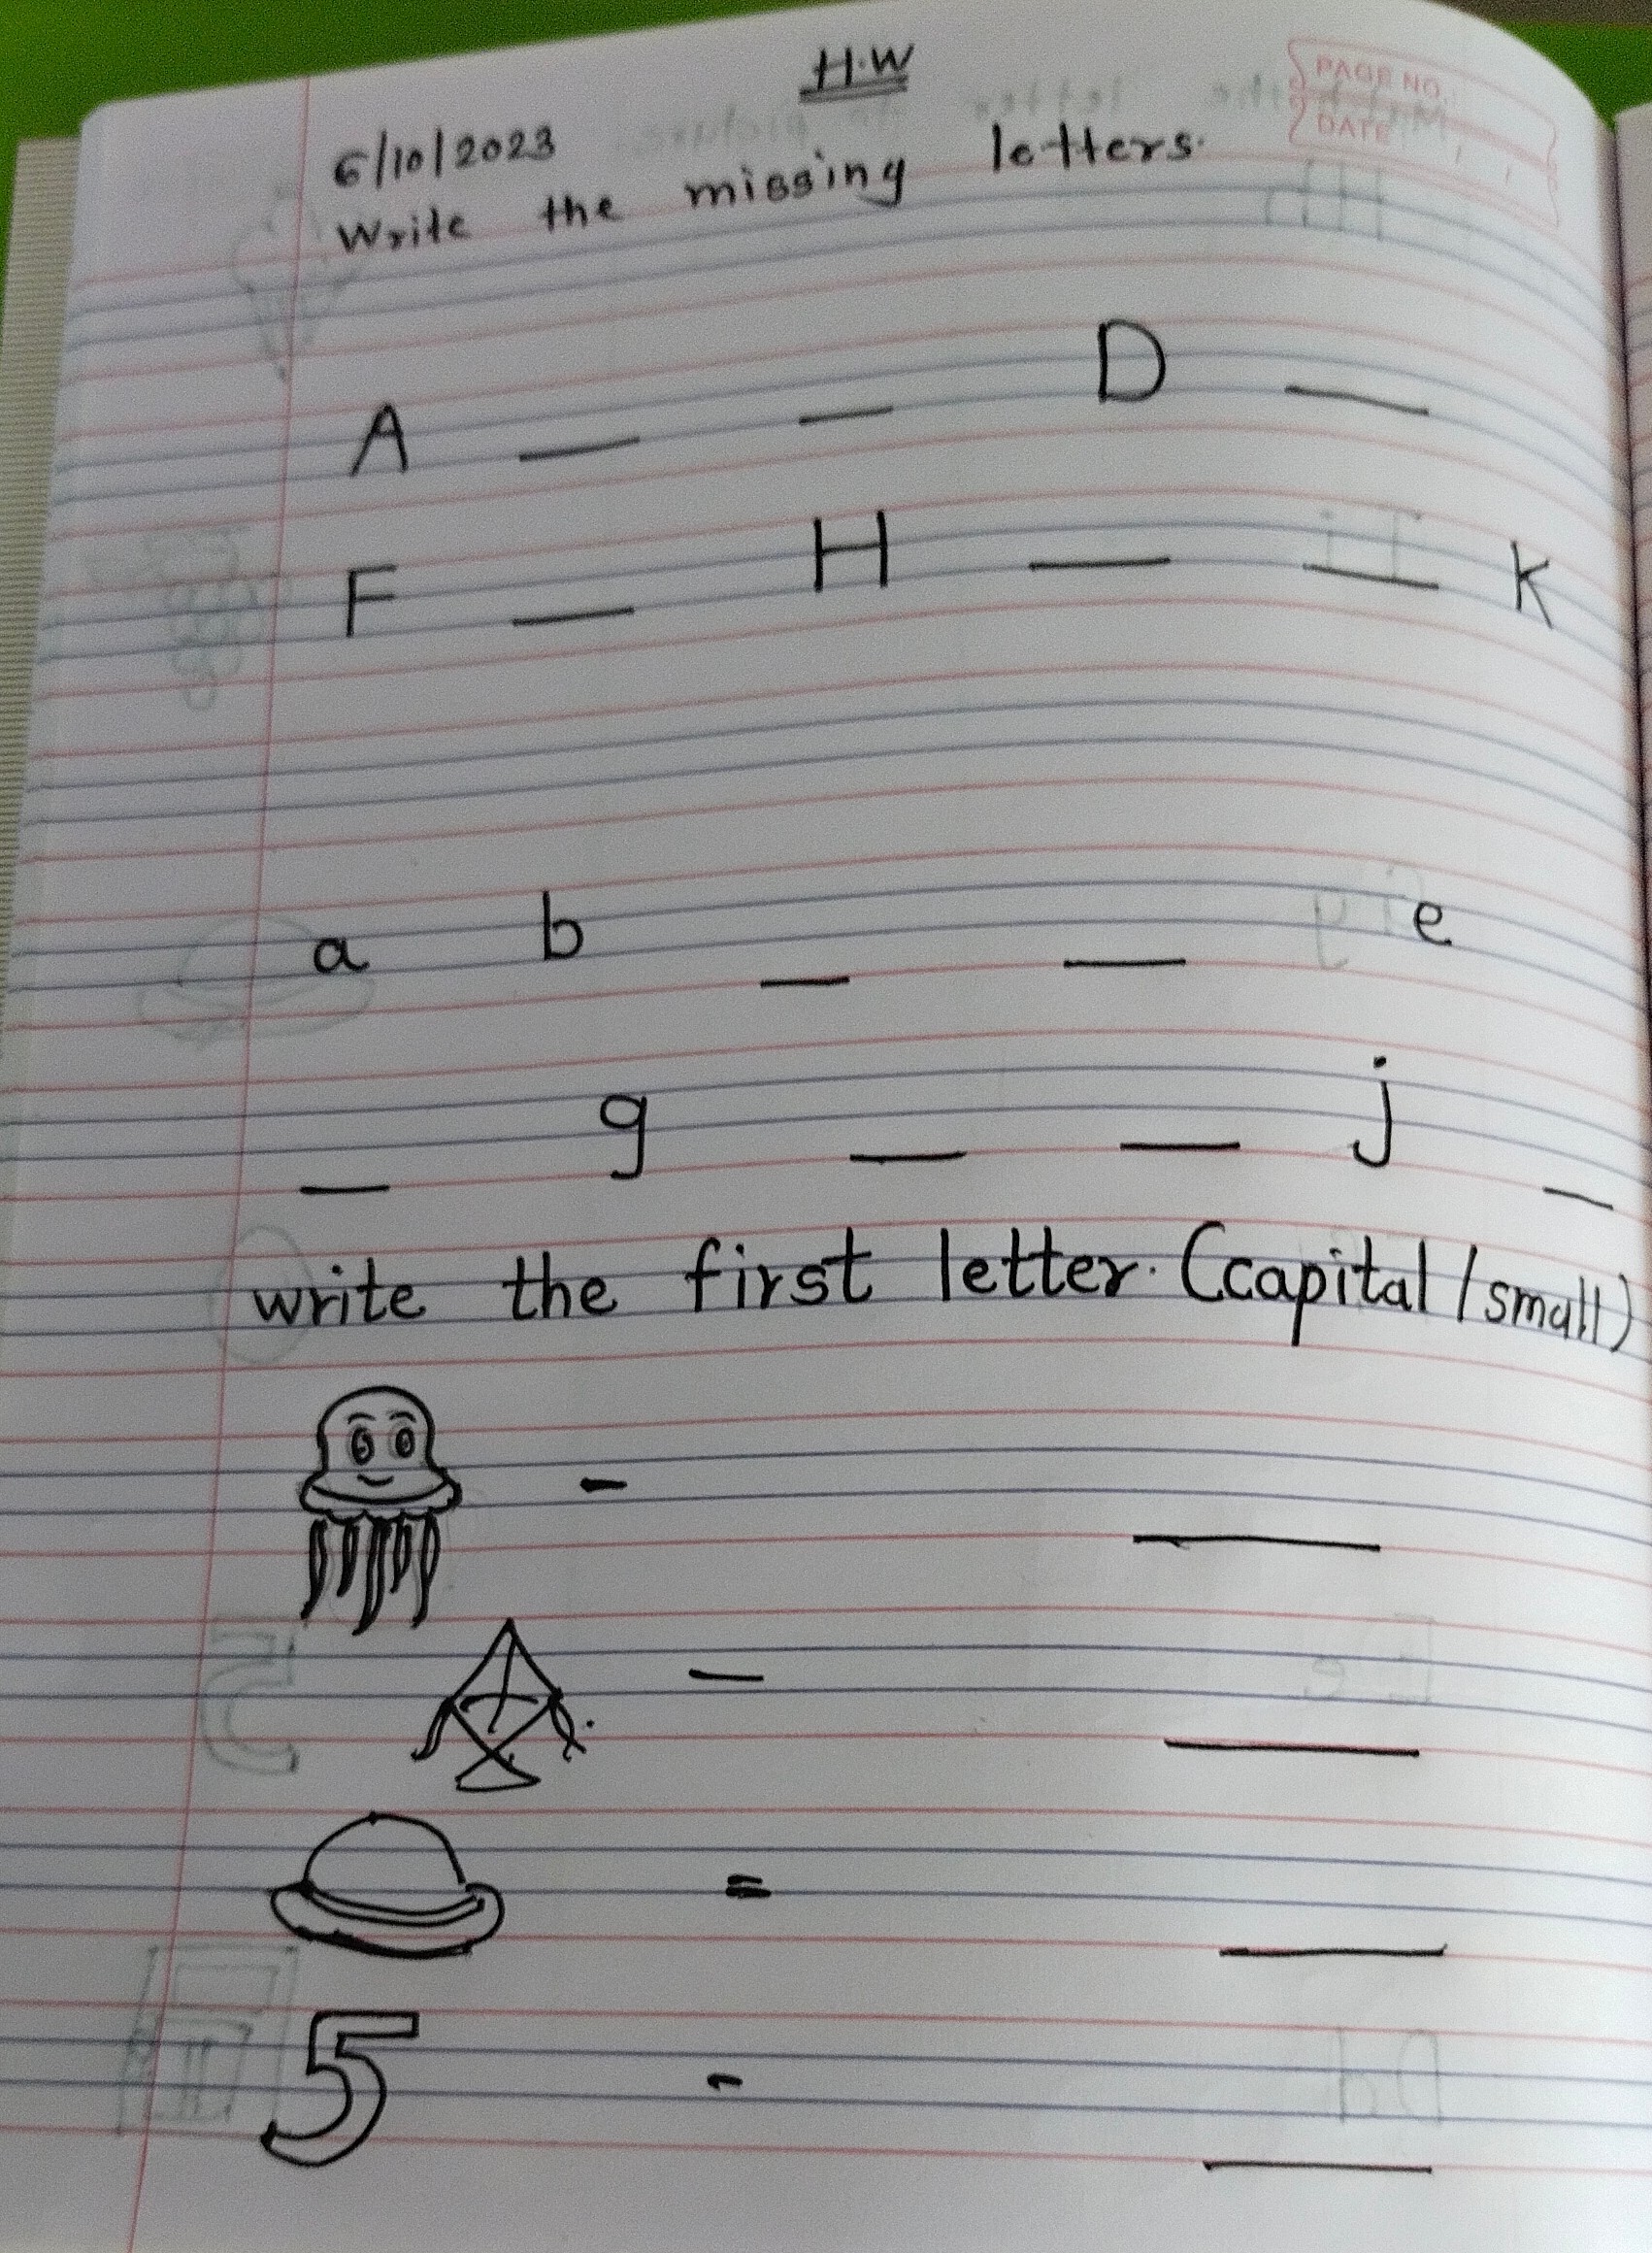 H.W
PAGE NO.
DATE
6/10/2023
Write the missing letters.
A _ _ D _
F _ H _ _ K
a b _ _ e
_ g _ _ j _
write the first letter. (capital / small)
- _
- _
= _
5 - _